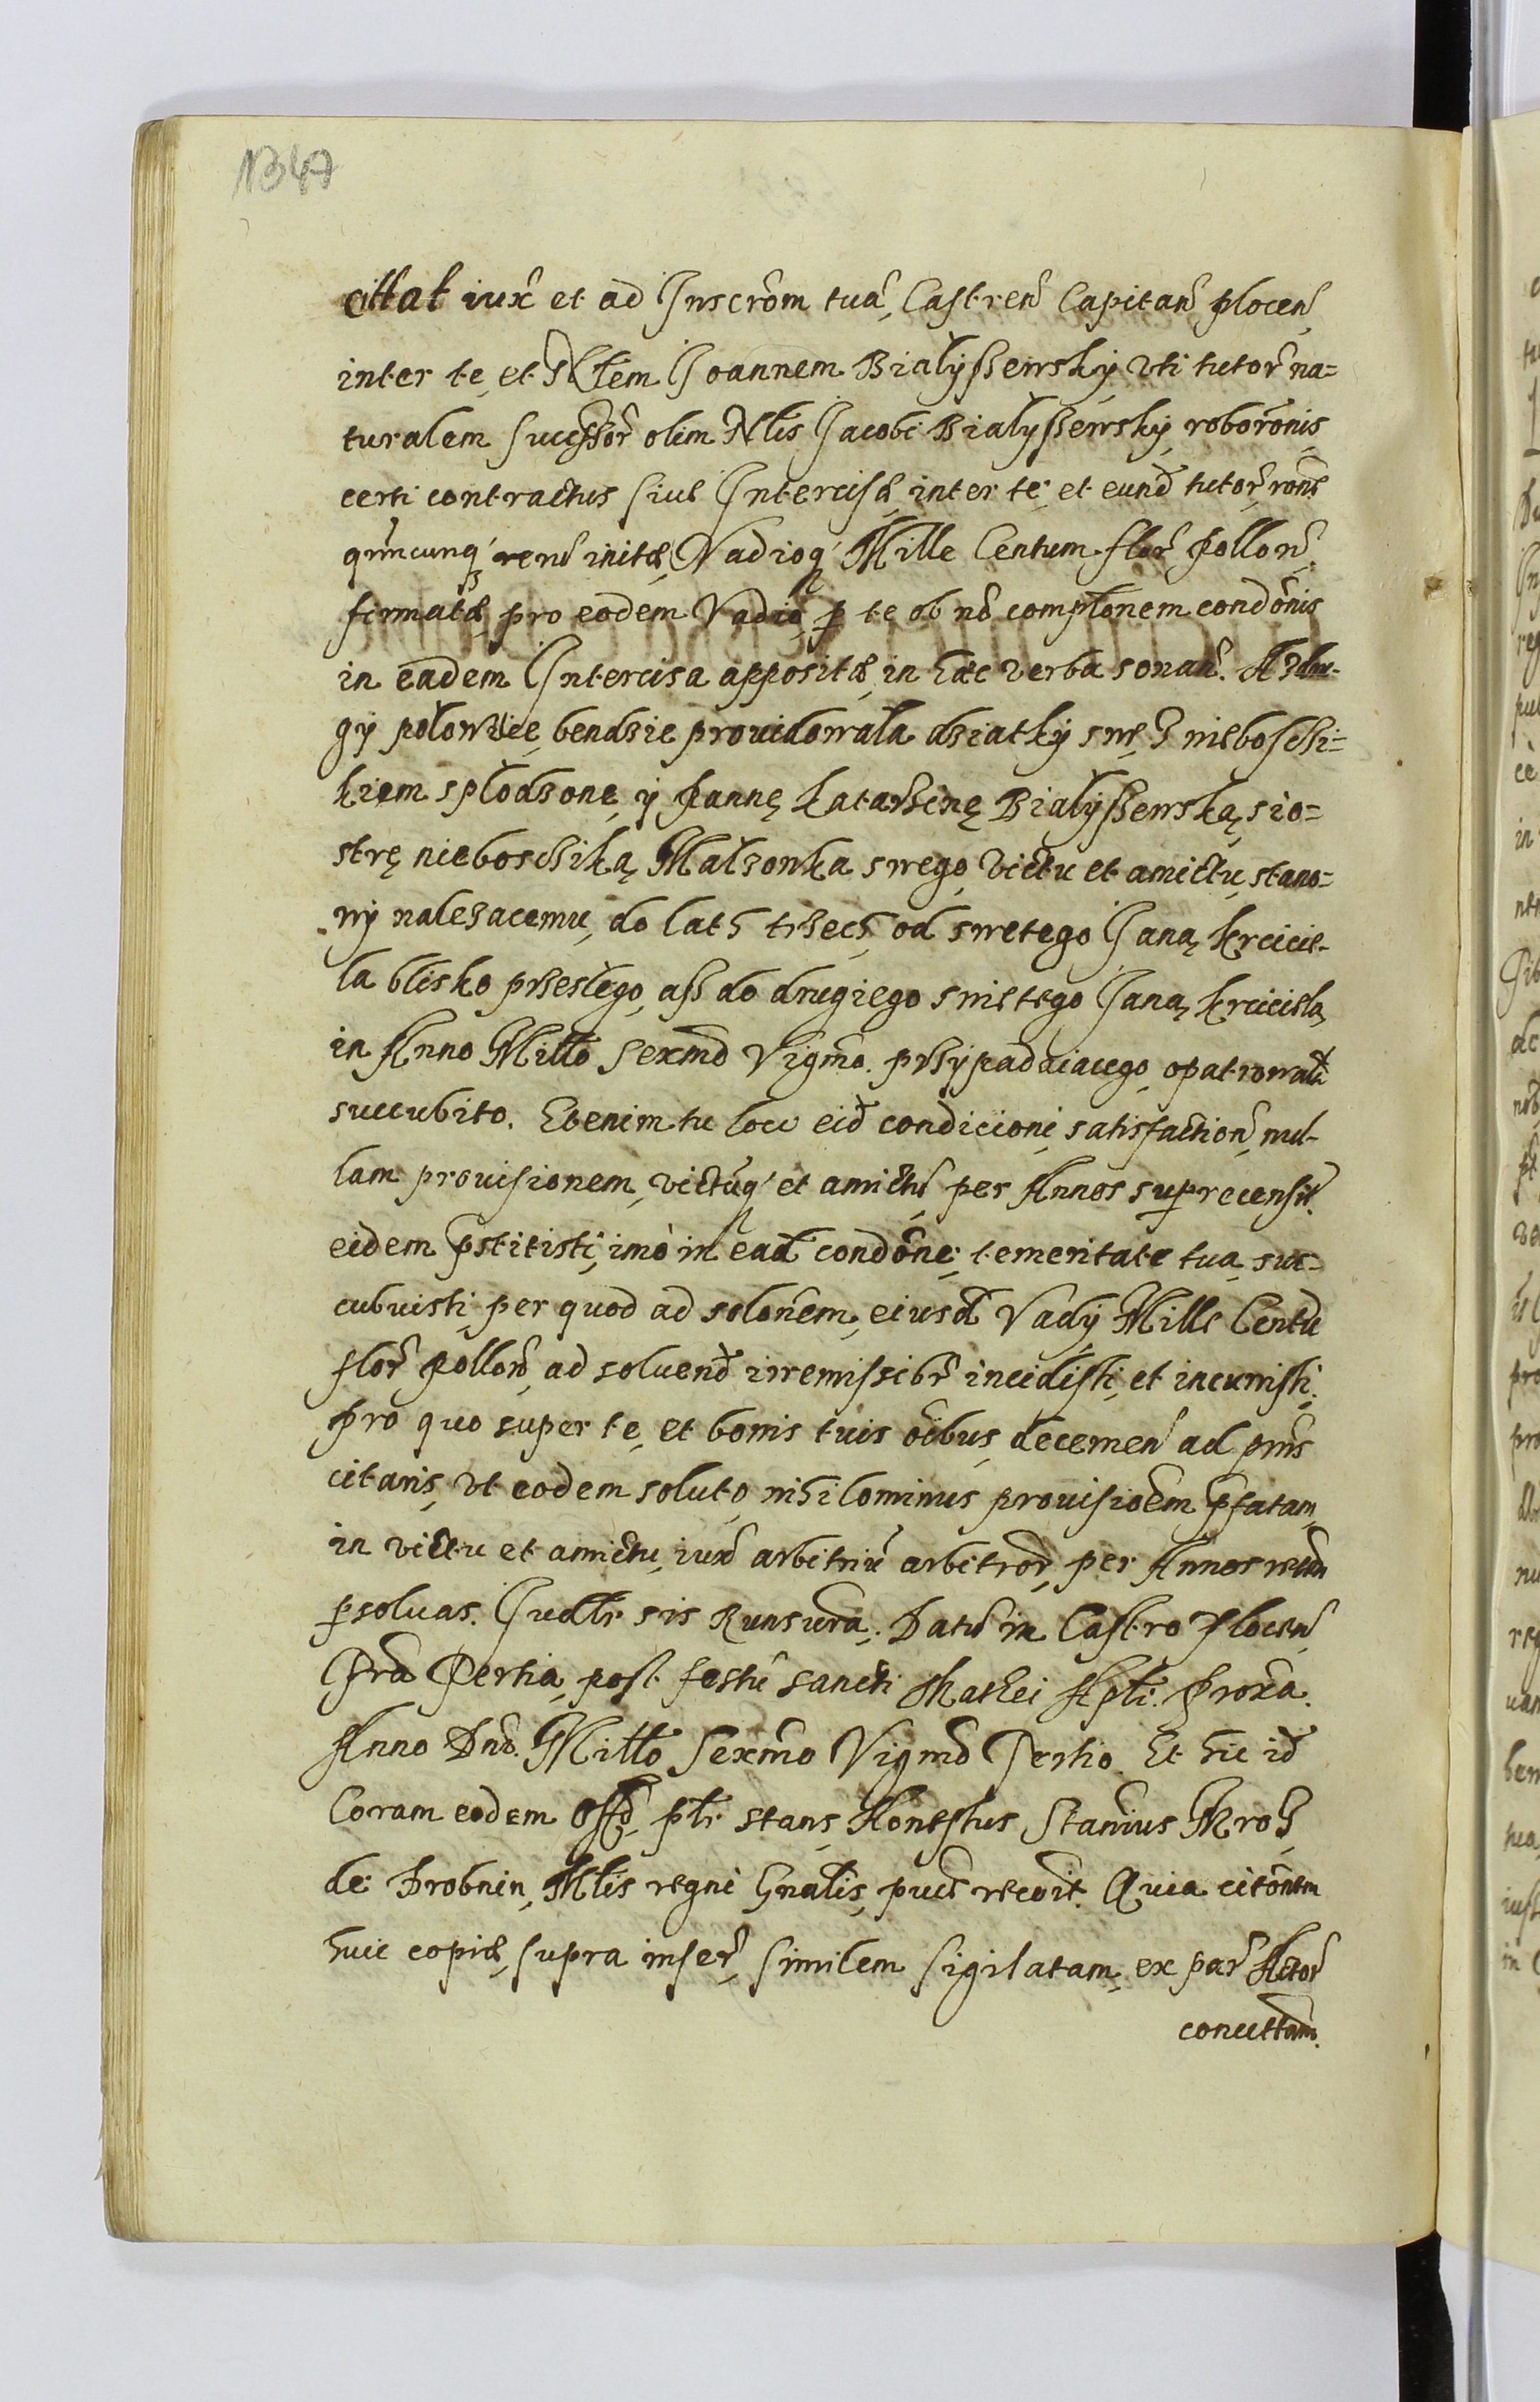 1347
cittat iux̃ et ad Inscr̃om tuã, Castren̄ Capitan̄ plocen̄
inter te, et Nłem Joannem Białyßewsky vti tutor̃ na=
turalem Successor̃ olim Nłis Jacobi Białyßewsky, robor̃onis
certi contractus siue Intercisæ inter te, et eund̃ tutor̃, ròne
quor̃ncunq́ꝫ rerũ initæ, Vadioq́ Mille Centum flor̃ pollon̄.
firmatæ, pro eodem Vadio, ꝑ te ob nõ complõnem condõnis
in eadem Intercisa appositæ, in hæc verba sonañ. A Zdru-
gy połowice, bendzie prouidowała dziatky swe, z niebosczi=
kiem spłodzone, y Pannę Katarzinę Białyßewską, sio=
strę nieboscziką Małzonka swego, victu et amictu, stano=
wy nalezacemu, do lath trzech, od swetego Jana, Krcicie-
la blisko przesłego, aß do drugiego swietego Jana, Krciciela,
in Anno Miłło Sexmõ Vigmõ. przypadaiacego opatrowacz
succubito. Etenim tu loco eid̃ condicioni, satisfaction̄, nul-
lam prouisionem, victúq́ et amictũ, per Annos suprecensit̃.
eidem p̃stitisti, imò in ead̃ condõne, temeritate tua, suc-
cubuisti, per quod ad solõnem, eiusd̃ Vadij Mille Centũ
flor̃ pollon̄, ad soluend̃ irremissibr̃ incidisti, et incurristi.
Pro quo super te, et bonis tuis oĩbus, decernen̄ ad pñns
citaris, vt eodem soluto, nihilominus prouisiõem p̃fatam,
in victu et amictu, iux̃ arbitriũ arbitror̃, per Annos retẽn
ꝑsoluas. Judłr sis Runsura. Datũ in Castro Plocen̄
Fr̃a Tertia, post festũ Sancti Mathei Apłi. Proxã.
Anno Dnĩ. Miłło Sexmõ Vigmõ Tertio. Et hic id̃
Coram eodem Offõ, płr stans, Honestus Stanĩus Mroz,
de Drobnin, Młis regni Gnalis, puce recoit. Quia citõnem
huic copiæ, supra inser̃, similem sigilatam, ex par̃ Actor̃
conuttam.